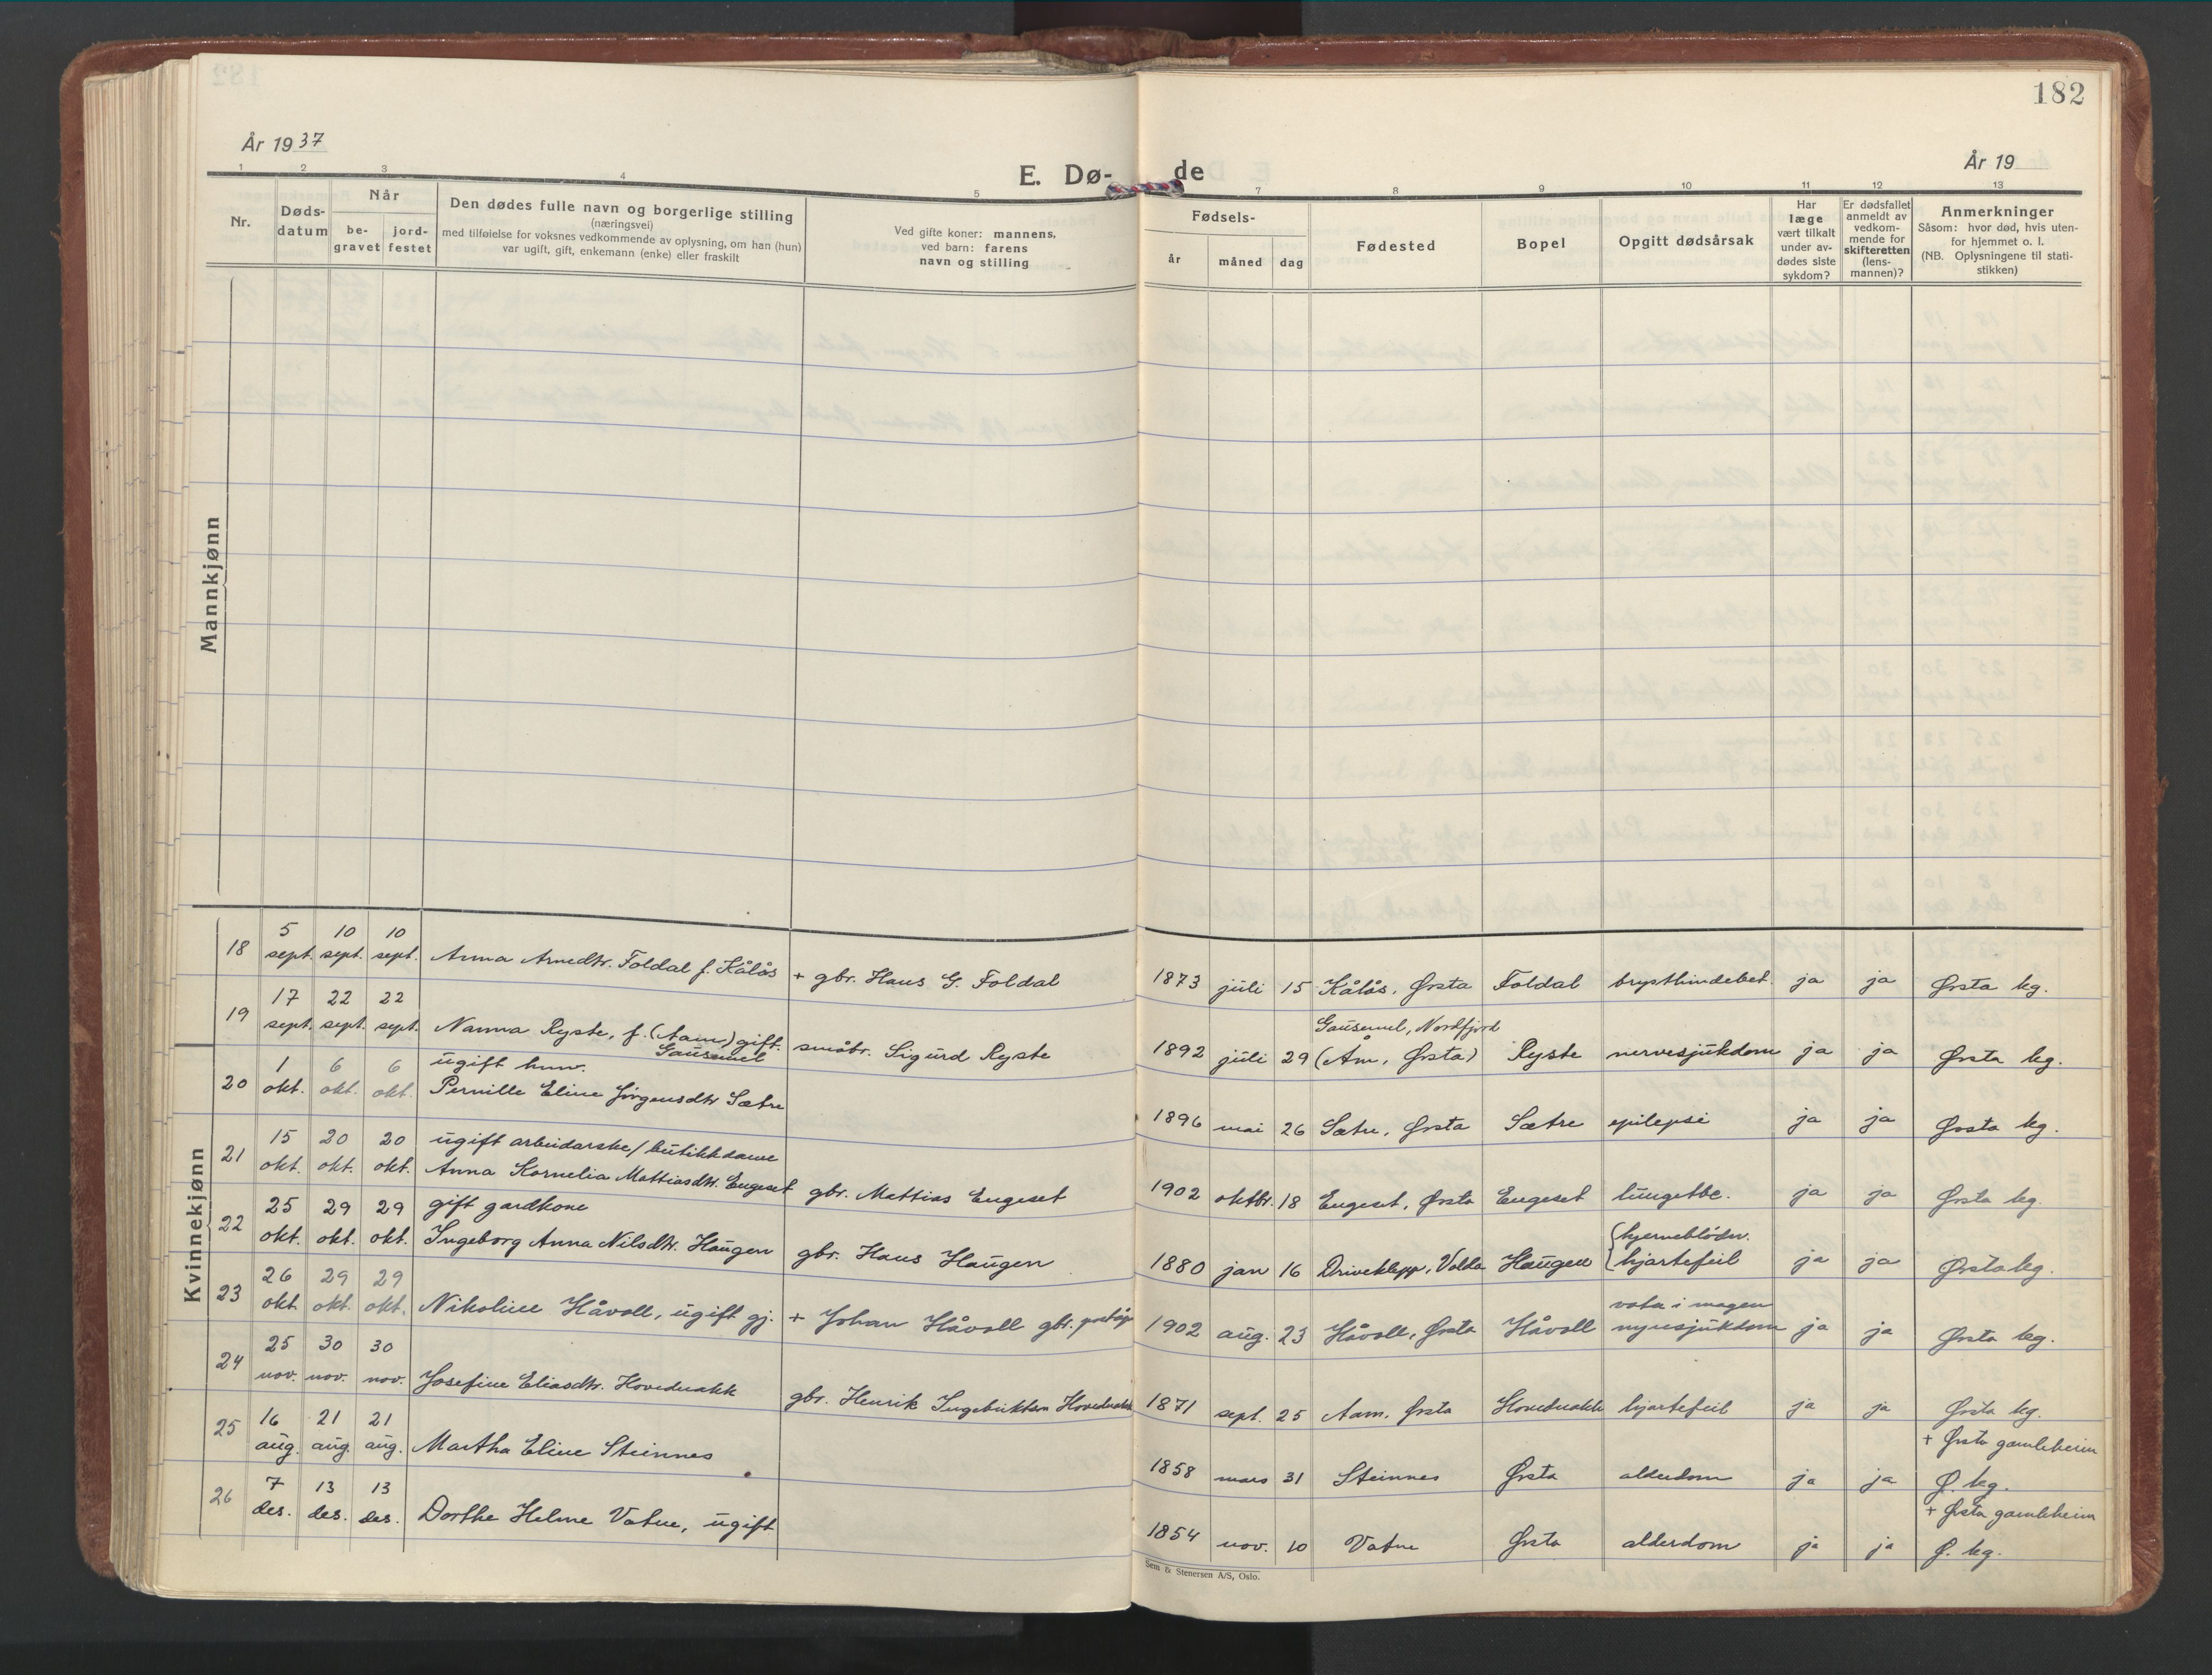 182
År 1937
E. Dø-
de
År 19
1 2 3 4 5 7 8 9 10 11 12 13
Nr.
Døds-
datum
Når
be-
gravet
jord-
festet
Den dødes fulle navn og borgerlige stilling
(næringsvei)
med tilføielse for voksnes vedkommende av oplysning, om han (hun)
var ugift, gift, enkemann (enke) eller fraskilt
Ved gifte koner: mannens,
ved barn: farens
navn og stilling
Fødsels-
år måned dag
Fødested
Bopel
Opgitt dødsårsak
Har
læge
vært tilkalt
under av-
dødes siste
sykdom?
Er dødsfallet
anmeldt av
vedkom-
mende for
skifteretten
(lens-
mannen)?
Anmerkninger
Såsom: hvor død, hvis uten-
for hjemmet o. l.
(NB. Oplysningene til stati-
stikken)
Mannkjønn
Kvinnekjønn
5 10 10
18 sept. sept. sept. Anna Arnedtr. Foldal f. Kålås + gbr. Hans G. Foldal 1873 juli 15 Kålås, Ørsta Foldal brysthindebet. ja ja Ørsta kg.
17 22 22
Gausemel, Nordfjord
19 sept. sept. sept. Nanna Ryste, f. (Aam) gift. småbr. Sigurd Ryste 1892 juli 29 (Åm, Ørsta) Ryste nervesjukdom ja ja Ørsta kg.
Gausemel
1 6 6 ugift husv.
20 okt. okt. okt. Pernille Eline Jørgensdtr Sætre 1896 mai 26 Sætre, Ørsta Sætre epilepsi ja ja Ørsta kg.
15 20 20 ugift arbeidarske/butikkdame
21 okt. okt. okt. Anna Kornelia Mattiasdtr. Engeset gbr. Mattias Engeset 1902 oktbr. 18 Engeset, Ørsta Engeset lungetbc. ja ja Ørsta kg.
25 29 29 gift gardkone
hjerneblødn.
22 okt. okt. okt. Ingeborg Anna Nilsdtr. Haugen gbr. Hans Haugen 1880 jan 16 Driveklepp, Volda Haugen hjartefeil ja ja Ørsta kg.
26 29 29
vatn i magen
23 okt okt. okt. Nikoline Håvoll, ugift gj. + Johan Håvoll gbr. 1902 aug. 23 Håvoll, Ørsta Håvoll nyresjukdom ja ja Ørsta kg.
25 30 30
24 nov. nov. nov. Josefine Eliasdtr. Hovdenakk gbr. Henrik Ingebriktsen Hovdenakk 1871 sept. 25 Aam, Ørsta Hovdenakk hjartefeil ja ja Ørsta kg.
16 21 21
+ Ørsta gamleheim
25 aug. aug. aug. Martha Eline Steinnes 1858 mars 31 Steinnes Ørsta alderdom ja ja Ø. kg.
7 13 13
+ Ørsta gamleheim
26 des. des. des. Dorthe Helene Vatne, ugift 1854 nov. 10 Vatne Ørsta alderdom ja ja Ø. kg.
Sem & Stenersen A/S, Oslo.